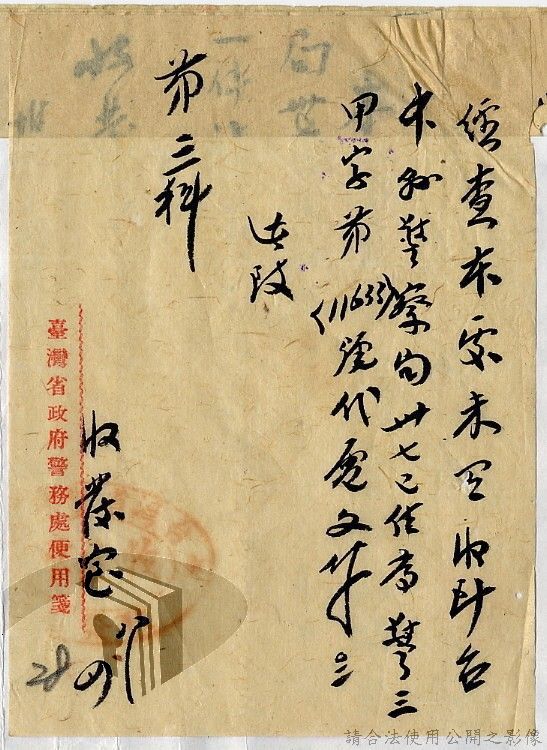 經查本處未曾收到台
中縣警察局卅七巳佳高警三
甲字第(11633)號代電文件
此致
第三科
收發室
臺灣省政府警務處便用箋
請合法使用公開之影像